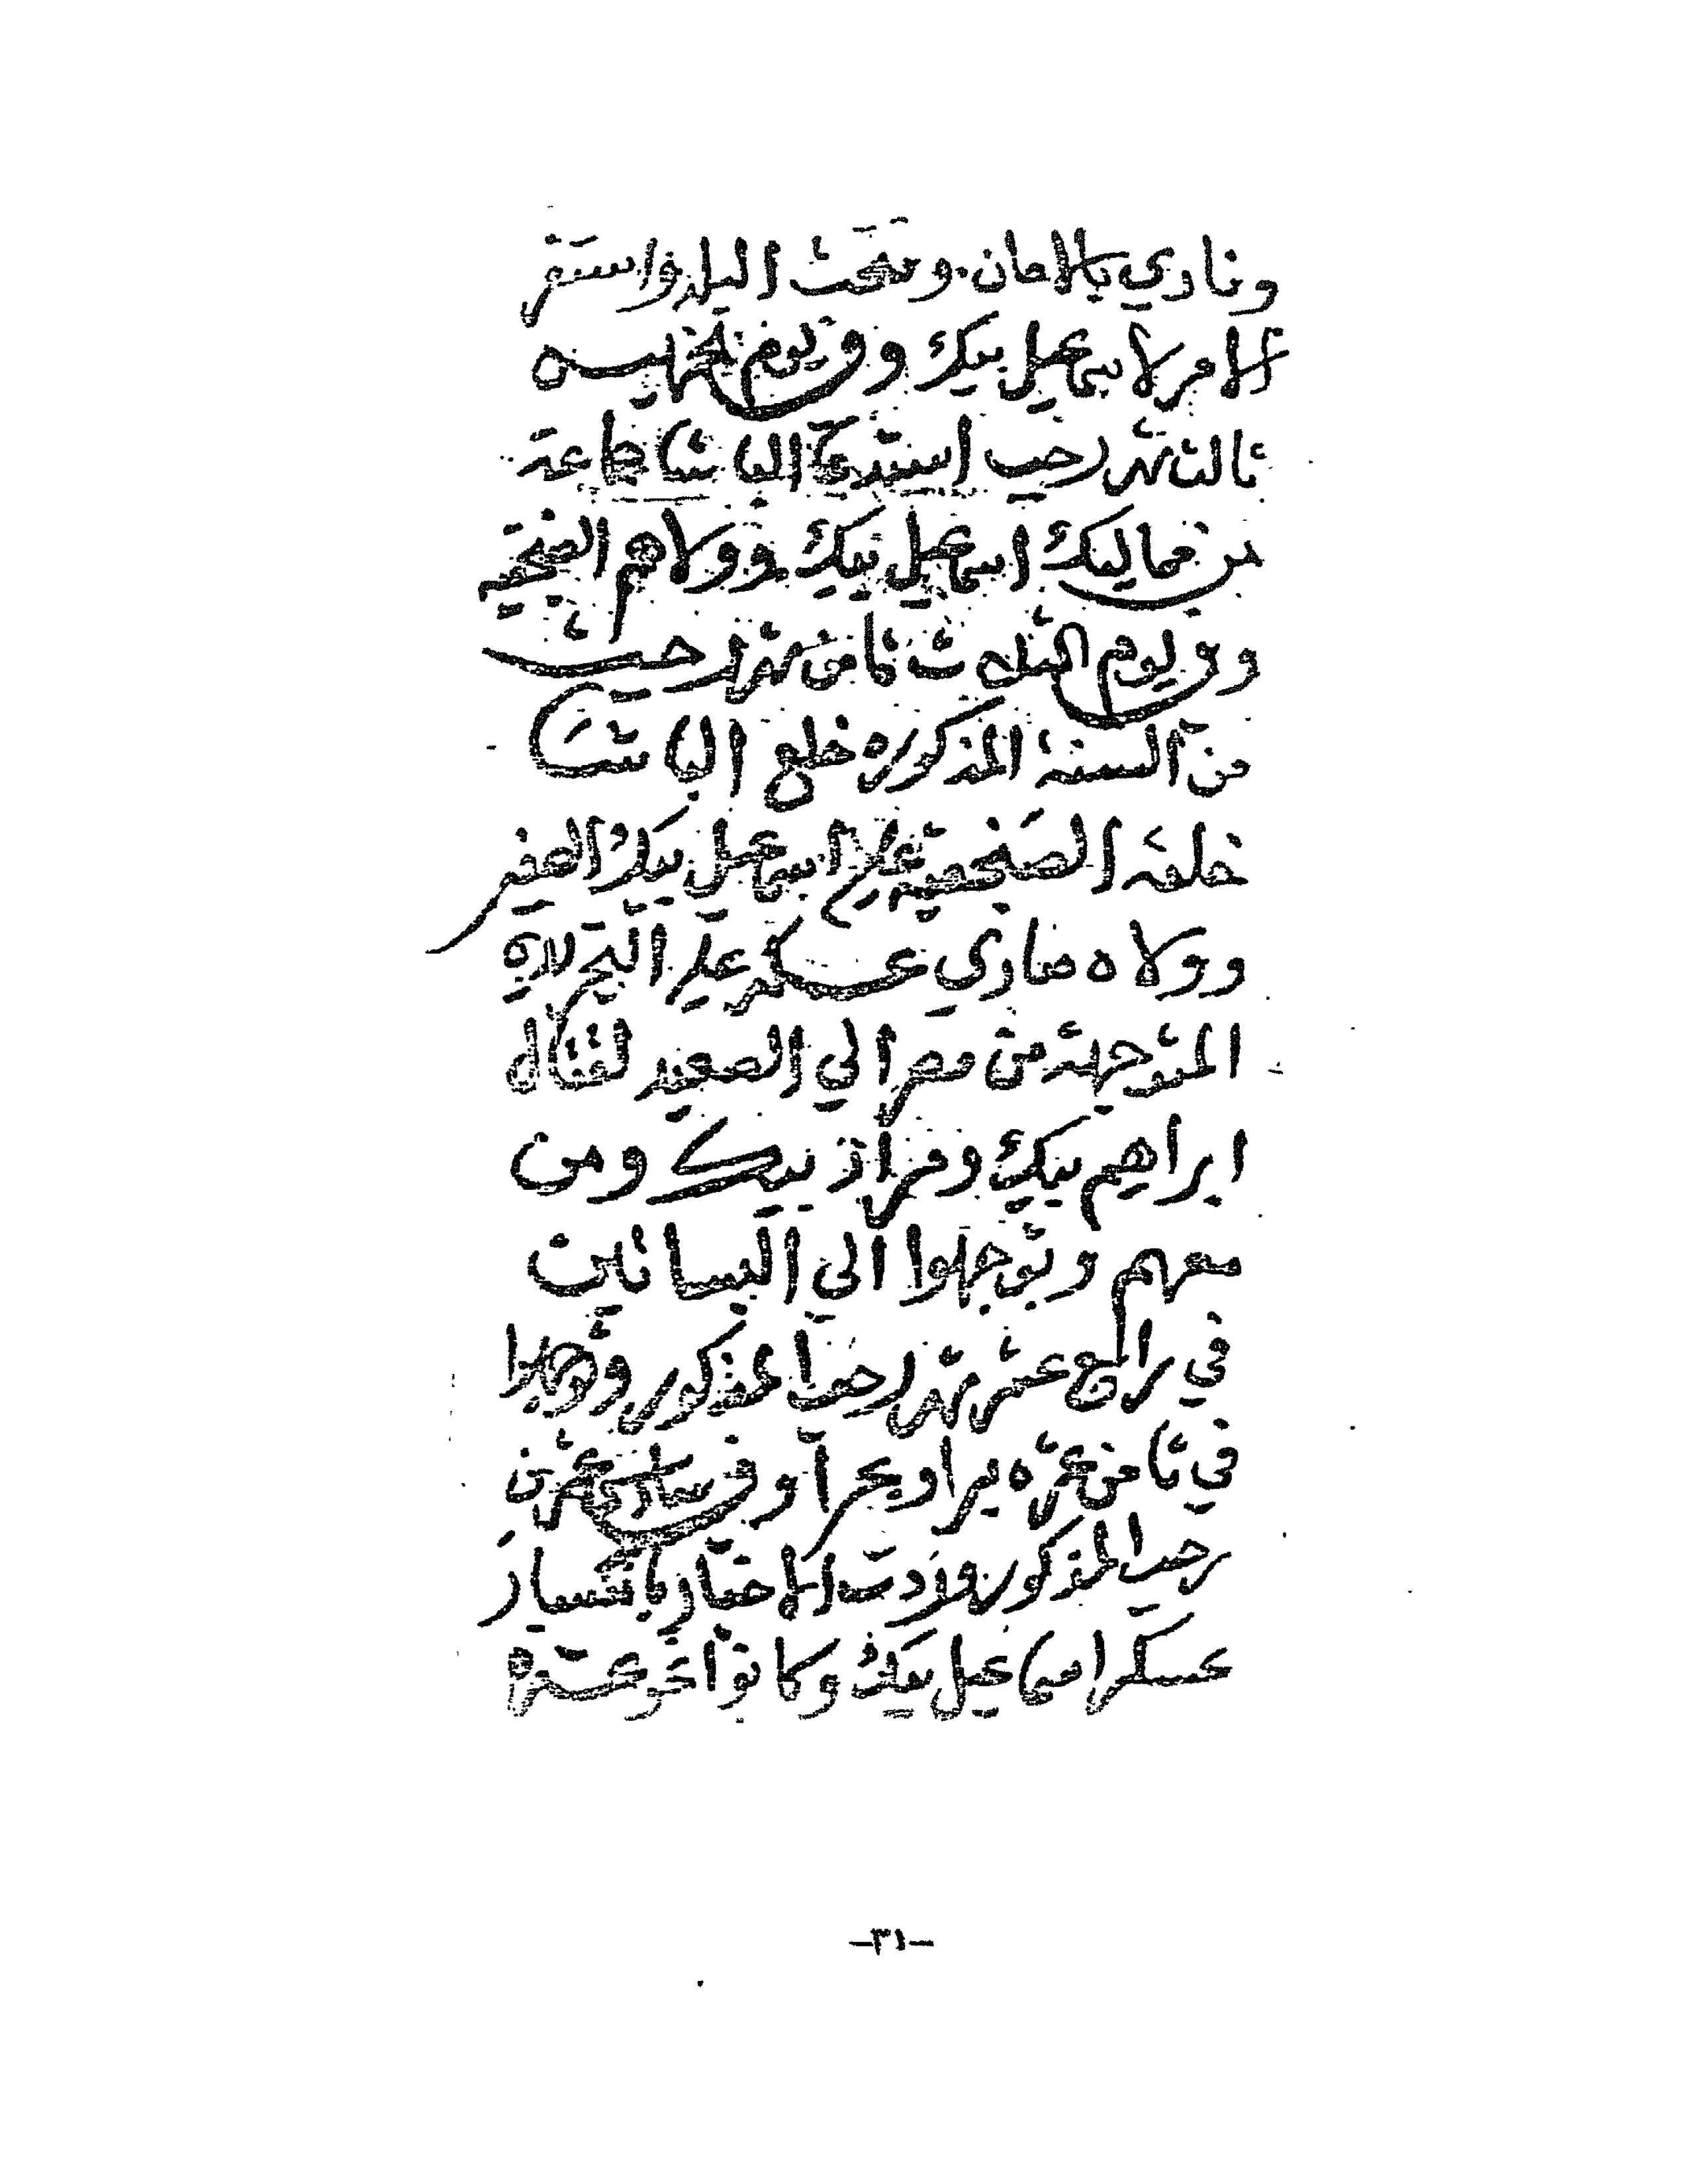 ونادي بالامان وفتحت البلد واستقر
الامر لاسماعيل بيك وفي يوم الخميس
ثالث شهر رجب استدعا الباشا جماعة
من مماليك اسماعيل بيك وولاهم الصنجقيه
وفي يوم الثلاث ثامن شهر رجب
من السنة المذكوره خلع الباشا
خلعة الصنجقية علي اسماعيل بيك الصغير
وولاه صاري عسكر علي التجريده
المتوجهة من مصر الي الصعيد لقتال
ابراهيم بيك ومراد بيك ومن
معهم وتوجهوا الي البساتين
في رابع عشر شهر رجب المذكور وتوجهوا
في ثامن عشره برا وبحرا وفي سادس عشرين
رجب المذكور وردت الاخبار بانكسار
عسكر اسماعيل بيك وكانوا نحو عشرة
-٣١-